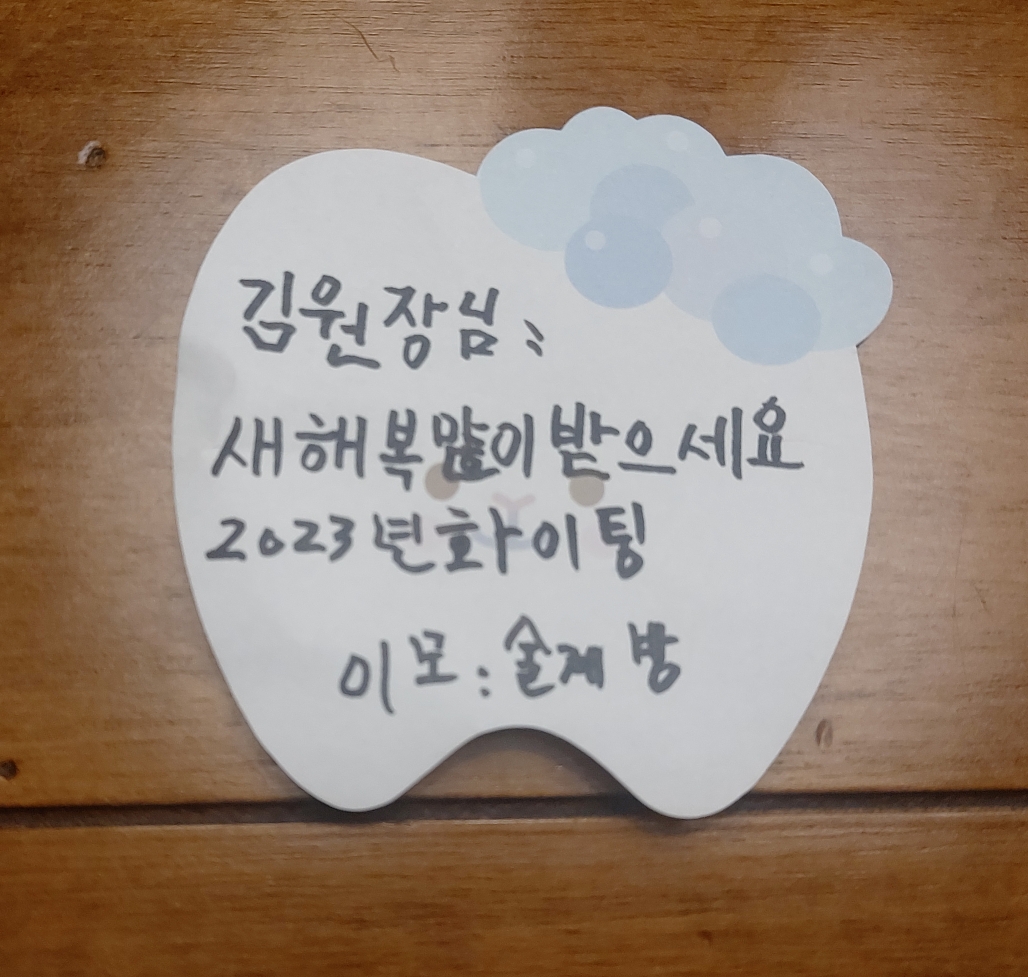 김원장님:
새해복많이받으세요
2023년화이팅
이모: 술제방